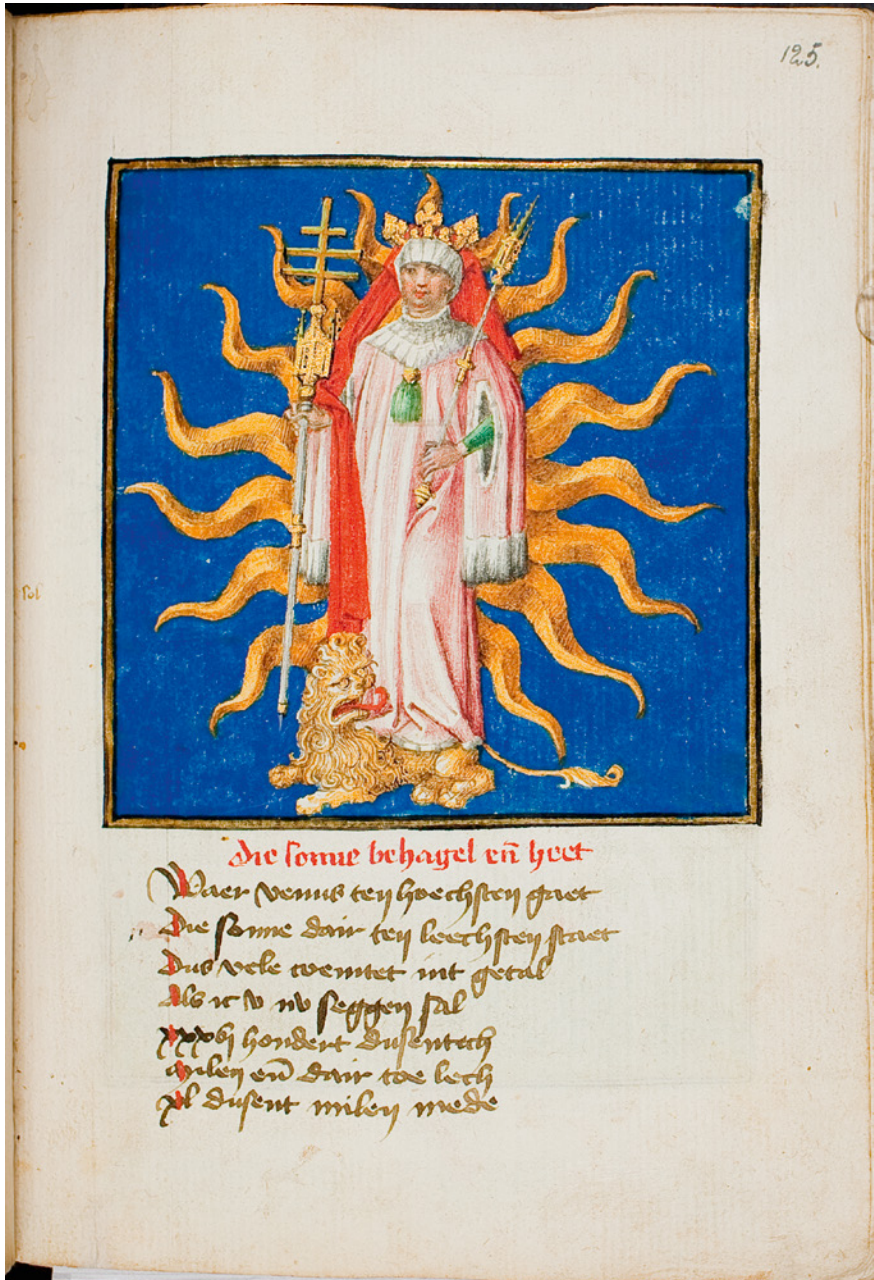 125.
sol
die sonne behagel en̄ heet
Waer venus ten hoechsten gaet
Die sonne dair ten leechsten staet
Dus vele coemtet int getal
Als ic v nv seggen sal
xxxvj hondert dusentech
milen en̄ dair toe lech
xl dusent milen mede